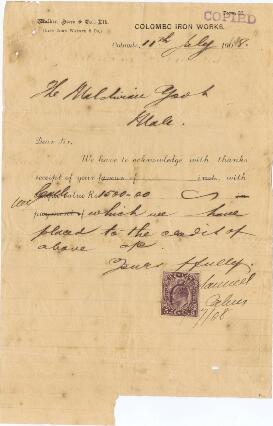 Walker, Sons & Co., Ltd.
(Late John Walker & Co.)
COLOMBO IRON WORKS.
COPIED
Colombo, 11th July 1908.
The Maldivian Govt
Male.
Dear Sir,
We have to acknowledge with thanks
receipt of your favour of inst. with
value Rs 1500-00
payment of which we have
placed to the credit of
above a/c
Yours ffully.
Samuel
7/08